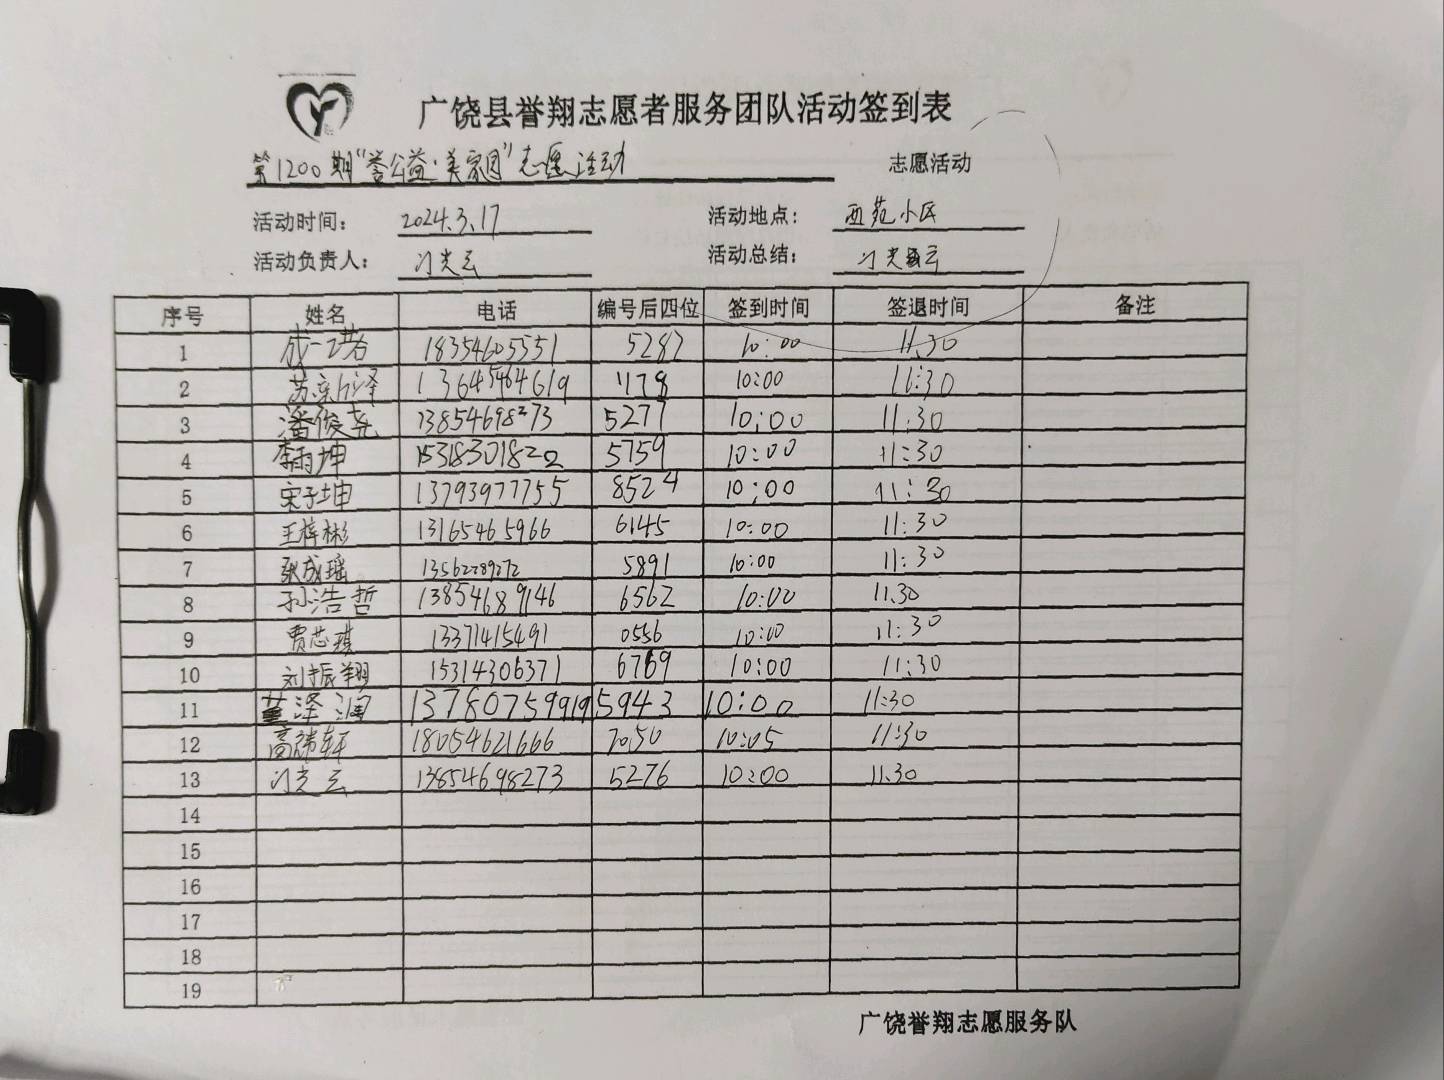 广饶县誉翔志愿者服务团队活动签到表
第1200期“誉公益·美家园”志愿活动 志愿活动
活动时间： 2024.3.17 活动地点： 西苑小区
活动负责人： 门光云 活动总结： 门光云
序号 姓名 电话 编号后四位 签到时间 签退时间 备注
1 成一 18354605551 5282 10:00 11.30
2 苏 13645464619 1178 10:00 11:30
3 潘俊尧 13854698273 5277 10:00 11.30
4 李雨坤 15318301822 5759 10:00 11:30
5 宋子坤 13793977755 8524 10:00 11:30
6 王梓彬 13165465966 6145 10:00 11:30
7 张成瑶 13562289272 5891 10:00 11:30
8 孙浩哲 13854689146 6562 10:00 11.30
9 贾芯琪 13371415491 0556 10:00 11:30
10 刘振翔 15314306371 6769 10:00 11:30
11 董泽润 13780759919 5943 10:00 11:30
12 高 轩 18054621666 7050 10:05 11:30
13 门光云 13854698273 5276 10:00 11.30
14
15
16
17
18
19
广饶誉翔志愿服务队